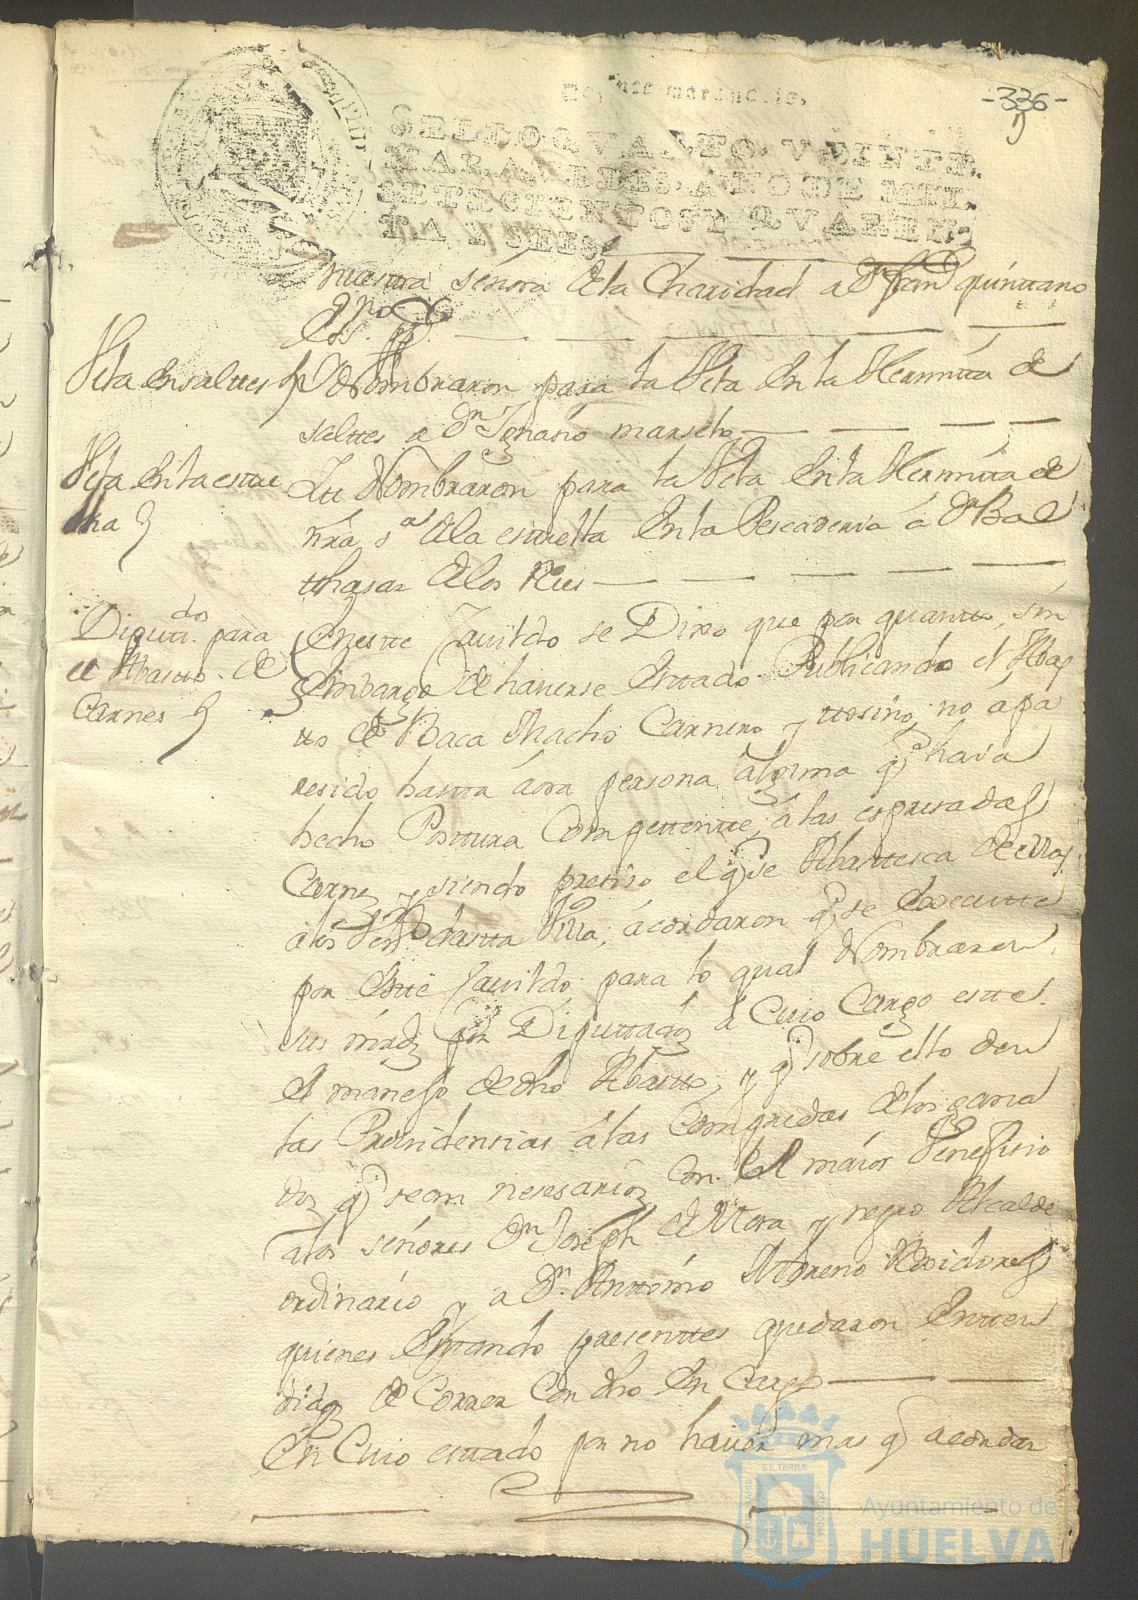 -336-
SELLO QVARTO, VEINTE
MARAVEDIS, AÑO DE MIL
SETECIENTOS Y QVAREN-
TA Y SEIS.
nuestra señora de la Charidad a Dn Franco quintano
Vela en saltes
Nombraron para la Vela en la Hermita de
saltes a Dn Ignasio
Vela en la estre
lla
Nombraron para la Vela en la Hermita de
nra sra de la estrella en la Pescaderia á Dn Bal
thasar de los Rios
Diputtdos para
el Abastto de
Carnes
En este Cavildo se Dixo que por quantto, sin
embargo de haverse esttado Publicando el Abas
tto de Baca Macho Carnero y ttosino, no á pa
resido hastta aora persona alguna qe haia
hecho Posttura Competentte, á las espresadas
Carnes y siendo presiso el qe se Abasttesca de ellas
a los desta Villa, acordaron qe se execute
por este Cavildo para lo qual Nombraron
sus mrds por Diputtados á Cuio Cargo estte
el manejo de dho Abastto, y qe sobre ello den
las Providensias á las Compradas de los gana
dos qe sean nesesarios Con el maior Venefisio
a los señores Dn Joseph de Mora y negro Alcalde
ordinario y a Dn Anttonio Moreno Rexidores
quienes esttando presenttes quedaron entten
didos de Correr Con dho en Cargo
En Cuio esttado por no haver mas qe acordar
Ayuntamiento de
HUELVA